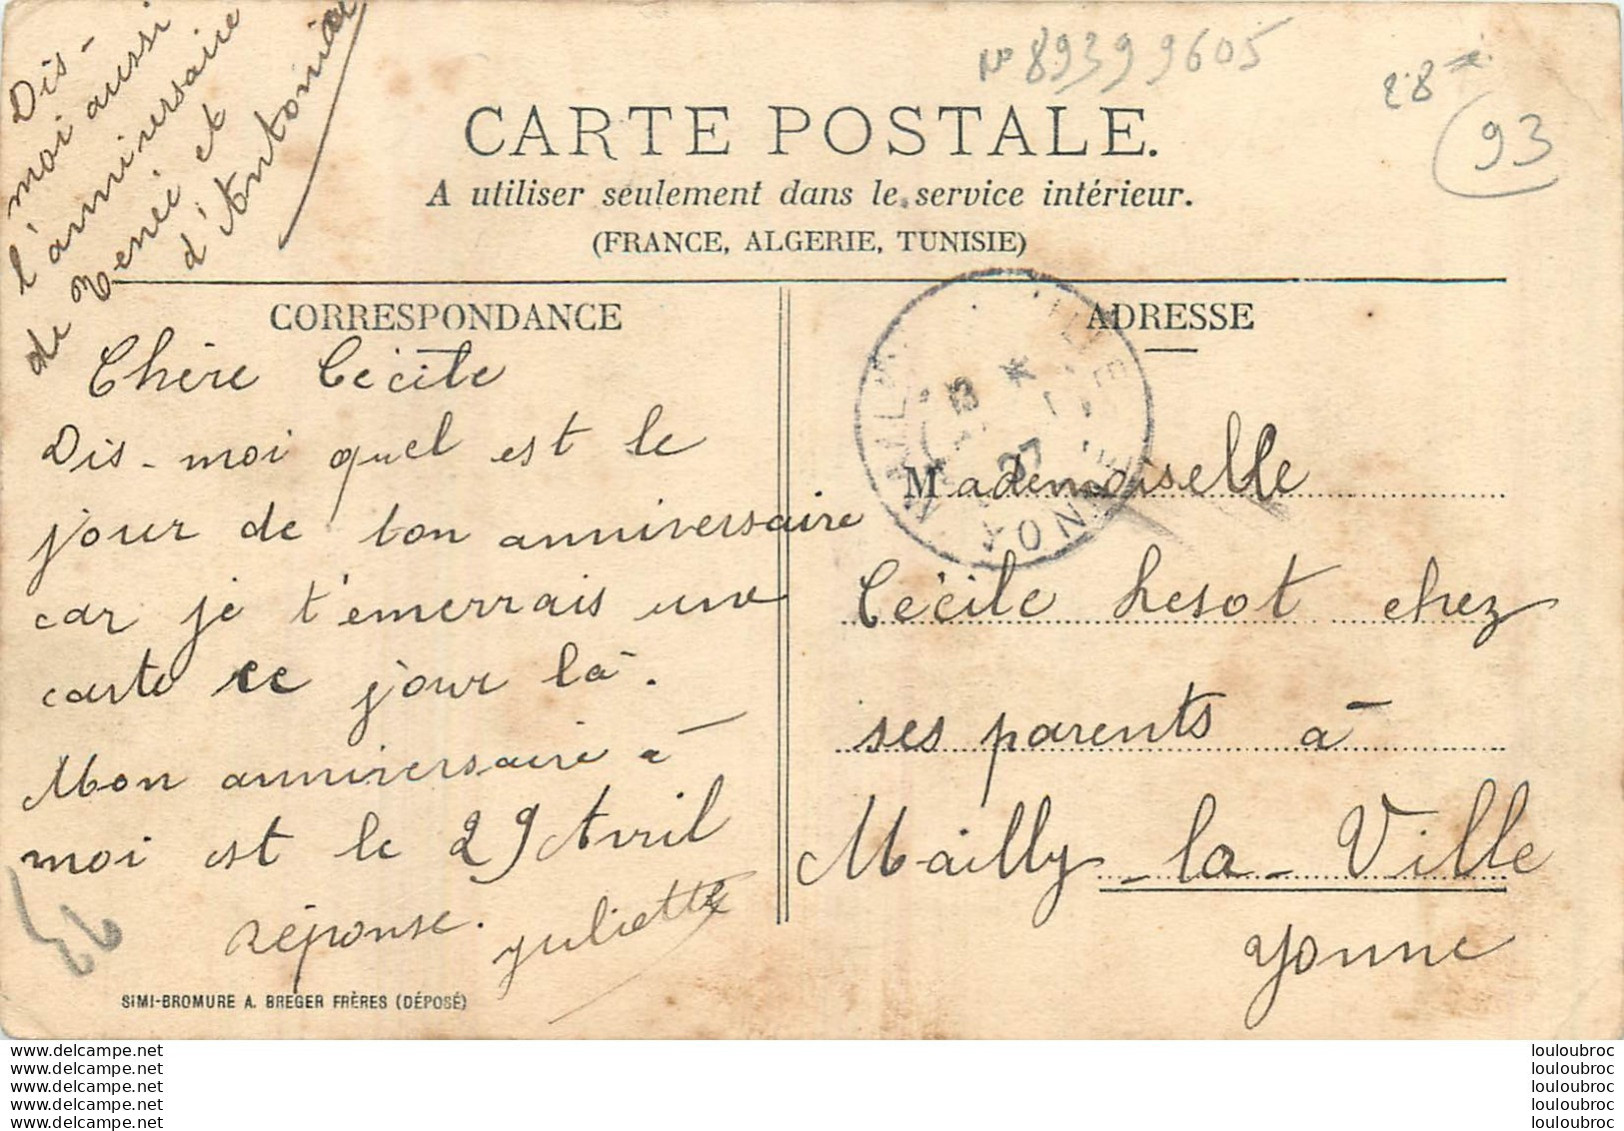 Dis-
moi aussi
l'anniversaire
de Renée et
d'Antonia
N° 89399605
28
93
CARTE POSTALE.
A utiliser seulement dans le service intérieur.
(FRANCE, ALGERIE, TUNISIE)
CORRESPONDANCE
Chère Cécile
Dis-moi quel est le
jour de ton anniversaire
car je t'emerrais une
carte ce jour là.
Mon anniversaire à
moi est le 29 Avril
réponse. Juliette
SIMI-BROMURE A. BREGER FRÈRES (DÉPOSÉ)
ADRESSE
YONNE
Mademoiselle
Cécile Lesot chez
ses parents à
Mailly-la-Ville
Yonne
www.delcampe.net
www.delcampe.net
www.delcampe.net
www.delcampe.net
www.delcampe.net
louloubroc
louloubroc
louloubroc
louloubroc
louloubroc